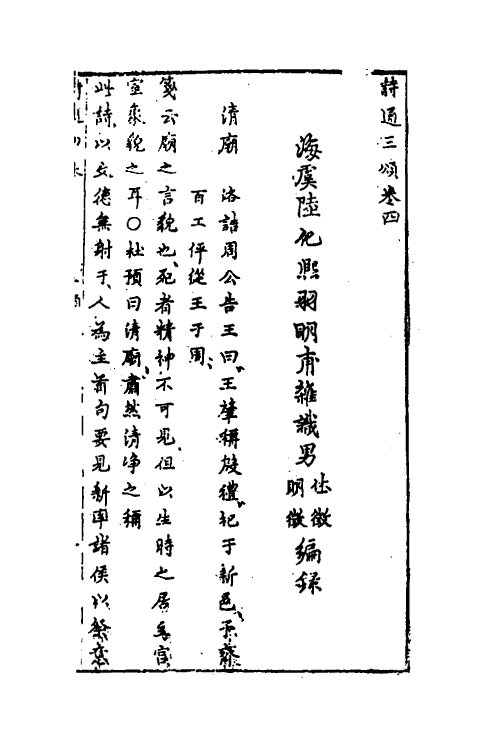 詩通三頌卷四
海虞陸化熙羽明甫雜識男
仕徵
明徵
編録
清廟　洛誥周公告王曰王肇稱殷禮祀于新邑予齊
百工伻從王于周
箋云廟之言貌也死者精神不可見但以生時之居為宮
室象貌之耳〇杜預曰清廟肅然清净之稱
此詩以文德無射于人為主首句要見新率諸侯以祭意